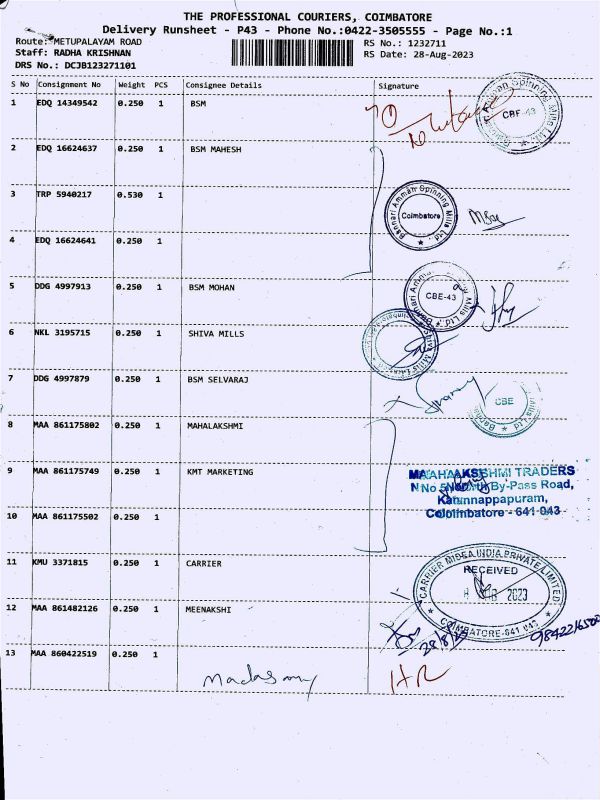 THE PROFESSIONAL COURIERS, COIMBATORE
Delivery Runsheet - P43 - Phone No.:0422-3505555 - Page No.:1
Route: METUPALAYAM ROAD RS No.: 1232711
Staff: RADHA KRISHNAN RS Date: 28-Aug-2023
DRS No.: DCJB123271101
S No Consignment No Weight PCS Consignee Details Signature
1 EDQ 14349542 0.250 1 BSM
Bannari Amman Spinning Mills Ltd.
CBE-43
2 EDQ 16624637 0.250 1 BSM MAHESH
3 TRP 5940217 0.530 1
Bannari Amman Spinning Mills Ltd.
Coimbatore
4 EDQ 16624641 0.250 1
5 DDG 4997913 0.250 1 BSM MOHAN
CBE-43
6 NKL 3195715 0.250 1 SHIVA MILLS
7 DDG 4997879 0.250 1 BSM SELVARAJ
CBE
8 MAA 861175802 0.250 1 MAHALAKSHMI
9 MAA 861175749 0.250 1 KMT MARKETING
TRADERS
By-Pass Road,
10 MAA 861175502 0.250 1
641 043
11 KMU 3371815 0.250 1 CARRIER
CARRIER MIDEA INDIA PRIVATE LIMITED
RECEIVED
2023
COIMBATORE-641 043
12 MAA 861482126 0.250 1 MEENAKSHI
28/8/23
13 MAA 860422519 0.250 1
Madasamy